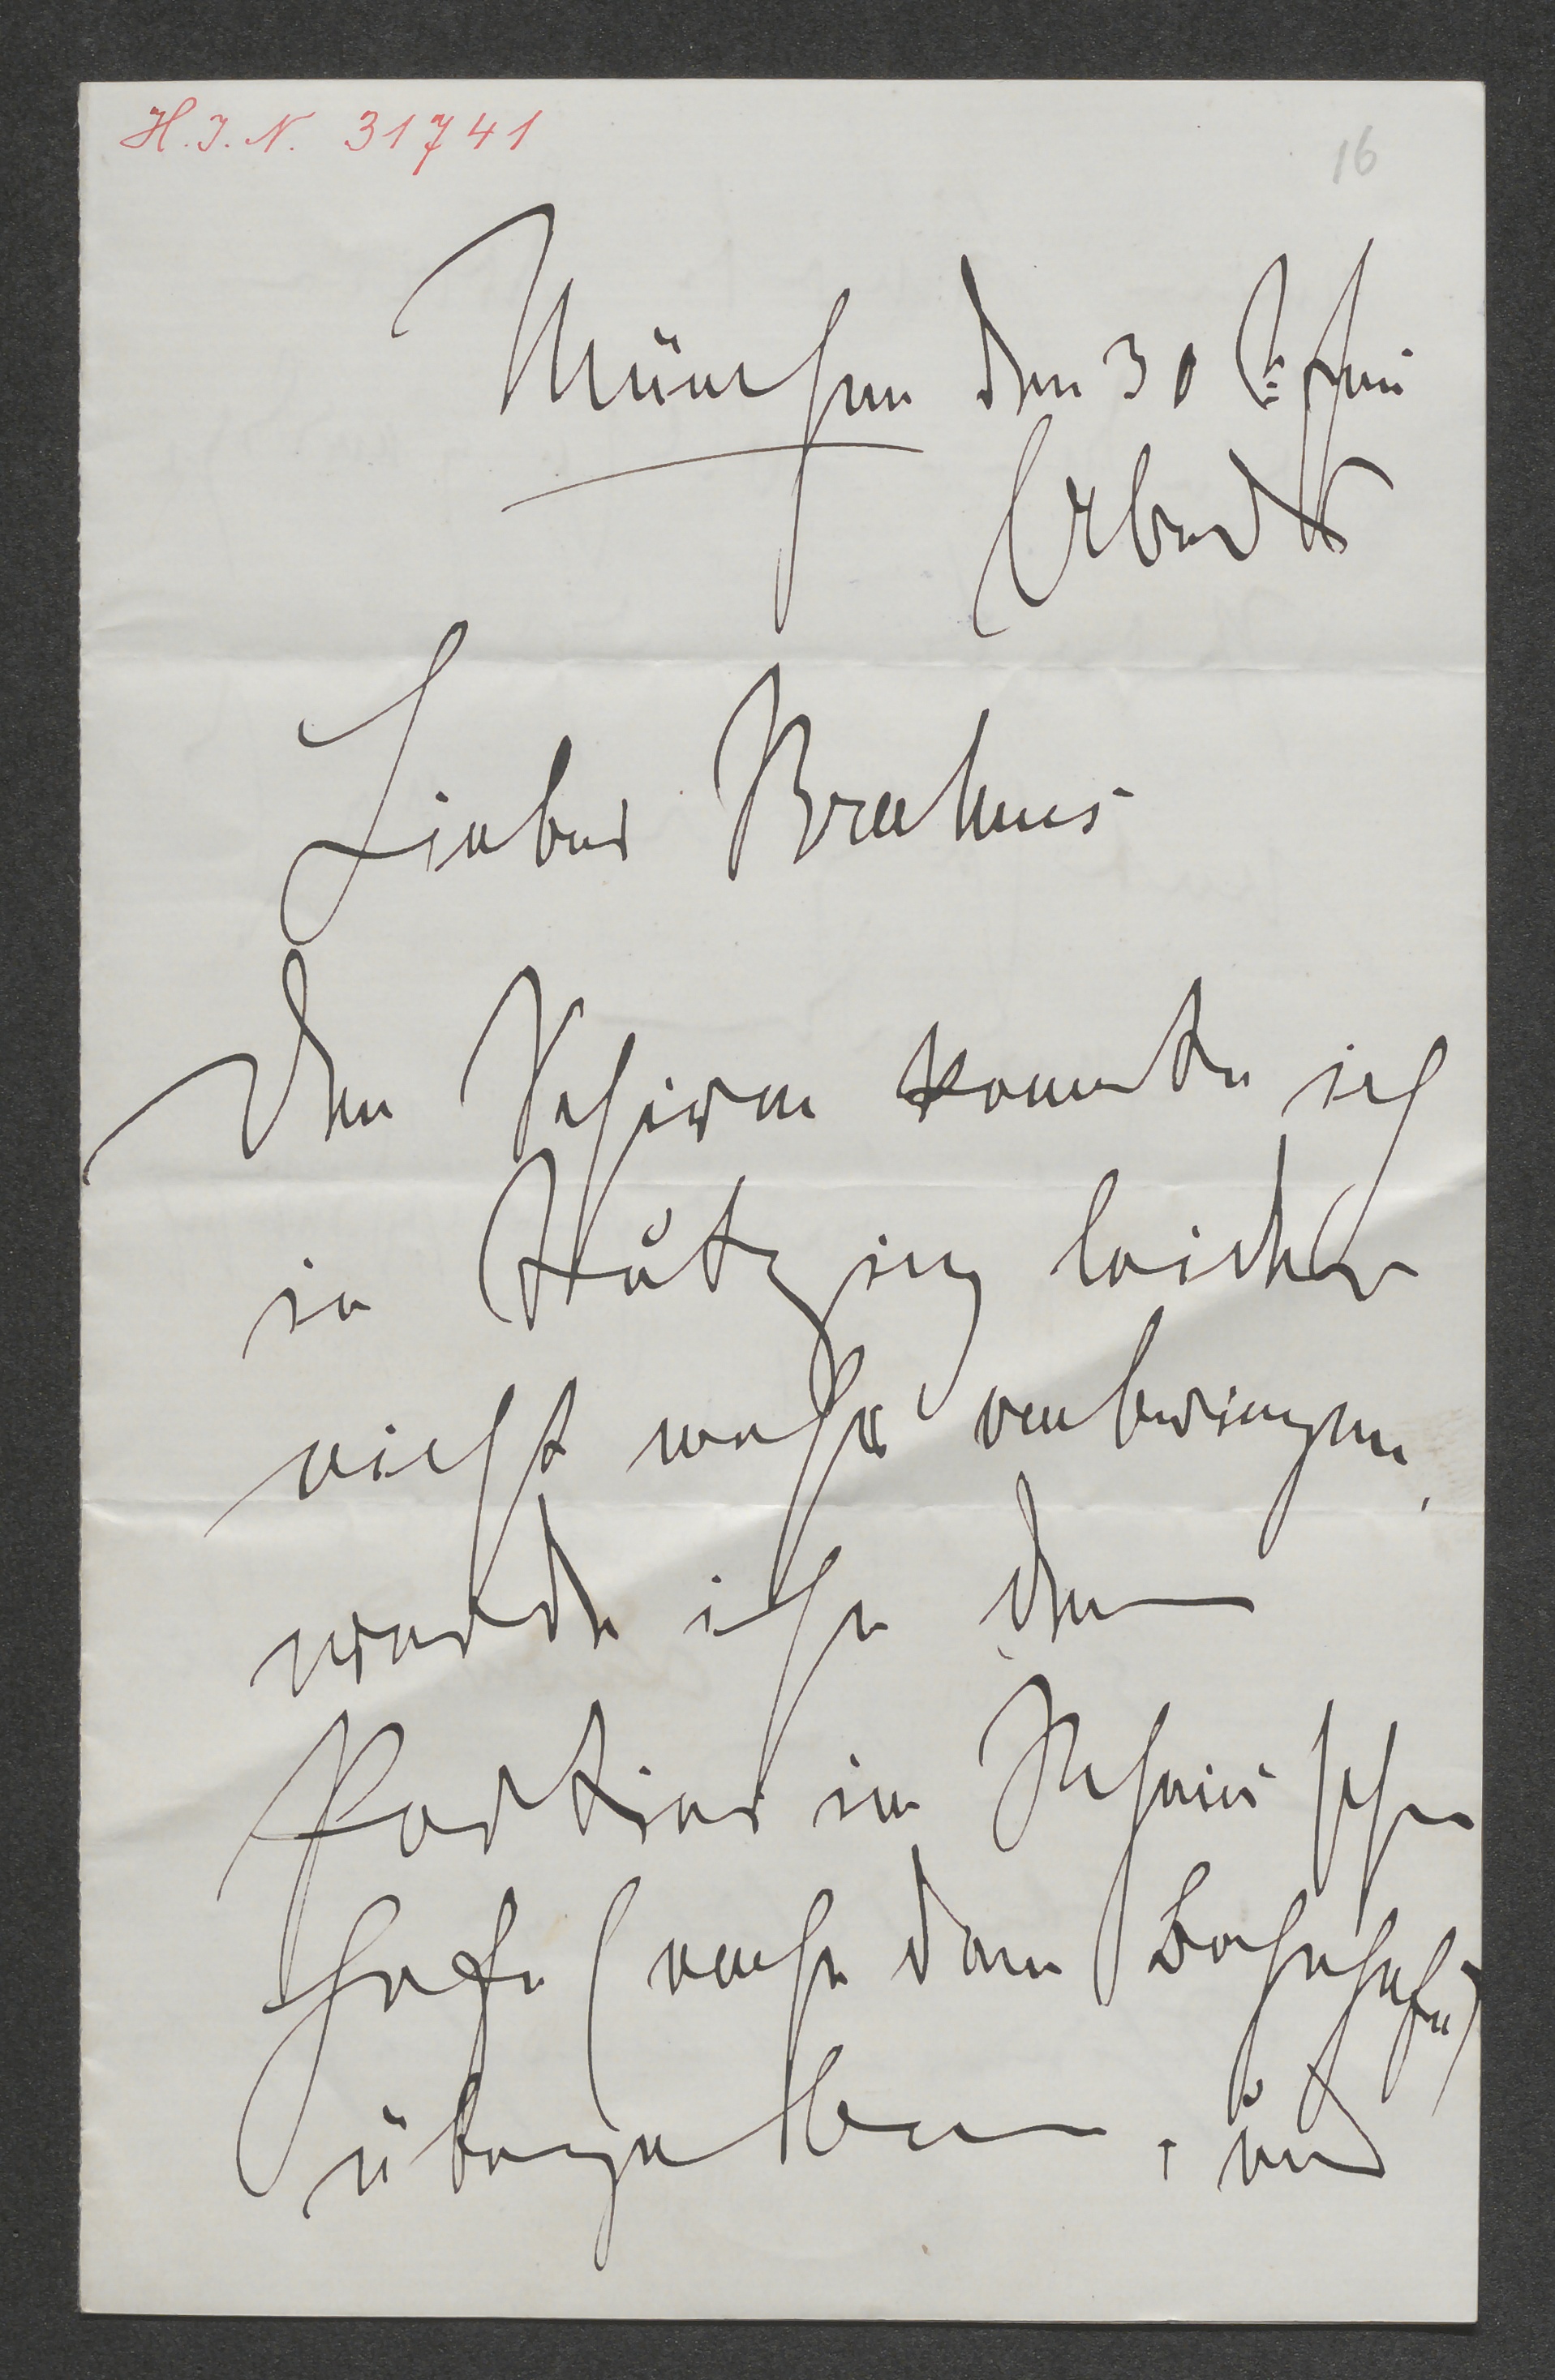 H.I.N. 31741
16
München den 30 t Juni
Abends
Lieber Brahms
Den Schirm konnte ich
in Tutzing leider
nicht mehr anbringen,
werde ihn dem
Portier im Rheinischen
Hofe (nahe dem Bahnhofe)
übergeben, und